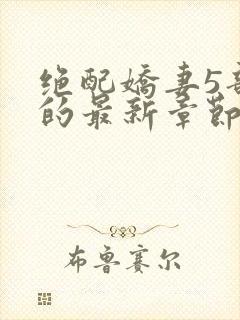 绝配娇妻5
的最新章节
布鲁赛尔